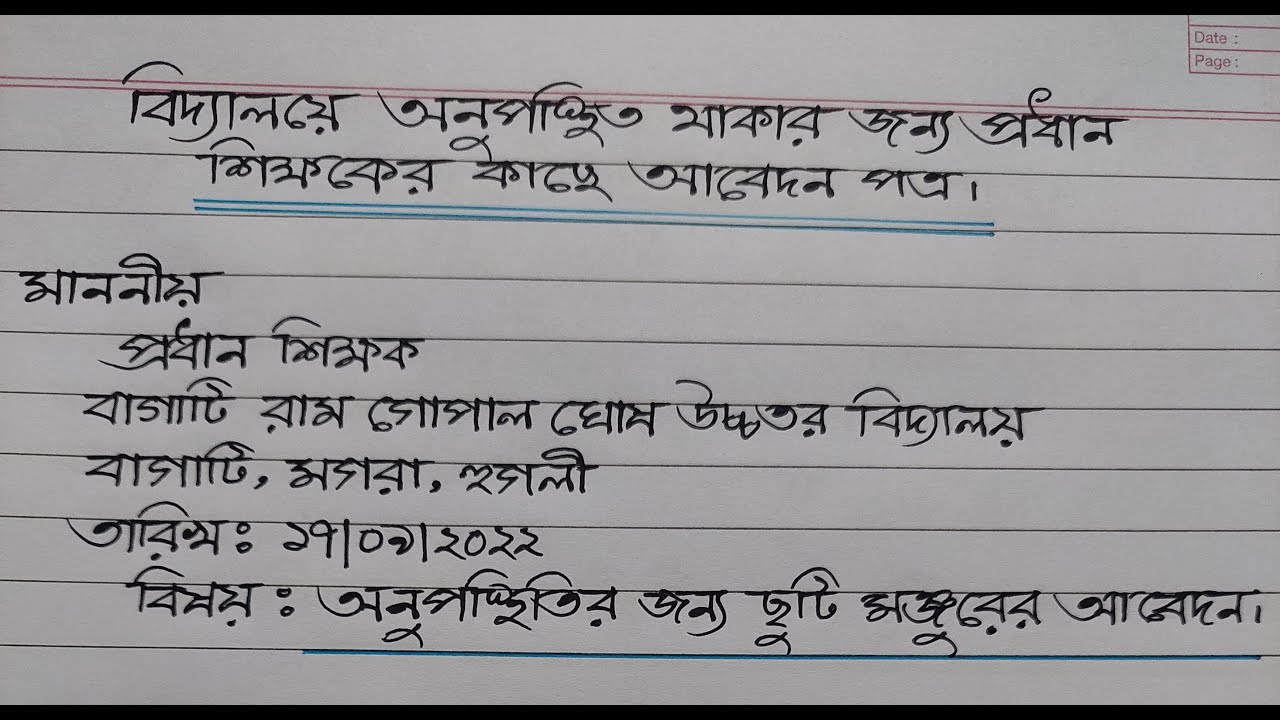 Date :
Page :
বিদ্যালয়ে অনুপস্থিত থাকার জন্য প্রধান
শিক্ষকের কাছে আবেদন পত্র।
মাননীয়
প্রধান শিক্ষক
বাগাটি রাম গোপাল ঘোষ উচ্চতর বিদ্যালয়
বাগাটি, মগরা, হুগলী
তারিখ: ১৭/০৯/২০২২
বিষয় : অনুপস্থিতির জন্য ছুটি মঞ্জুরের আবেদন।